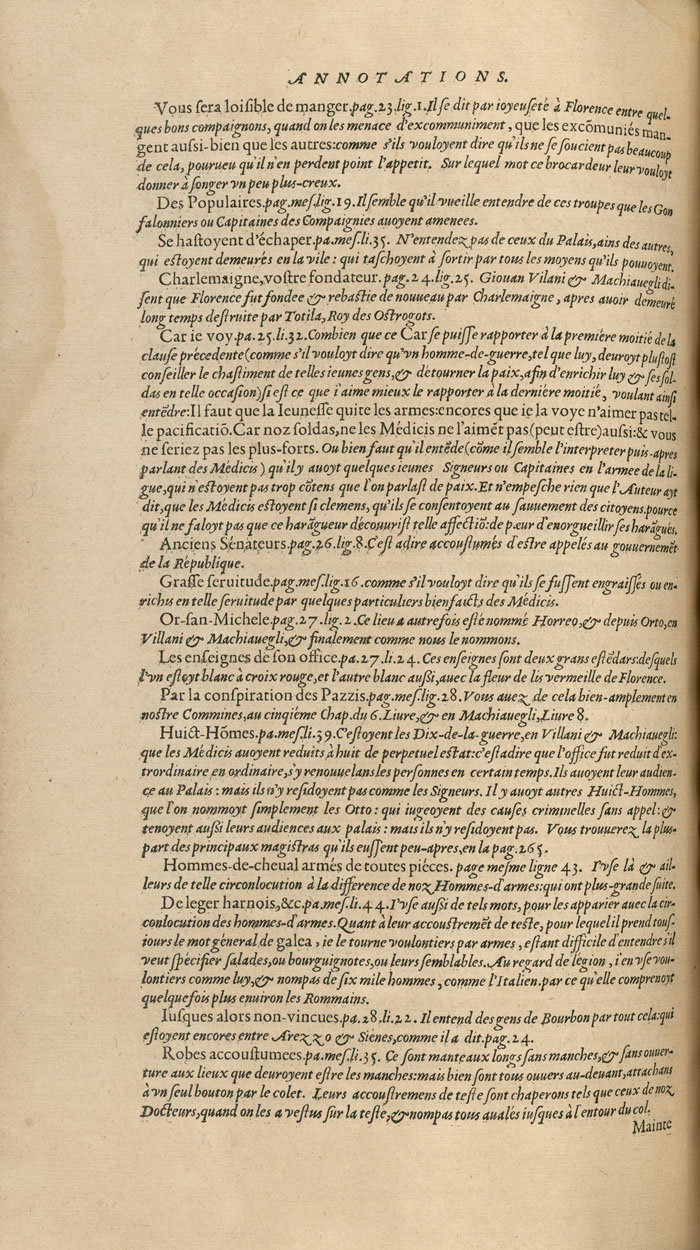 ANNOTATIONS.
Vous sera loisible de manger.pag.23.lig.1.Il se dit par ioyeuseté à Florence entre quel-
ques bons compaignons, quand on les menace d'excommuniment, que les excõmuniés man-
gent aussi-bien que les autres:comme s'ils vouloyent dire qu'ils ne se soucient pas beaucoup
de cela, pourueu qu'il n'en perdent point l'appetit. Sur lequel mot ce brocardeur leur vouloyt
donner à songer vn peu plus-creux.
Des Populaires.pag.mes.lig.19.Il semble qu'il vueille entendre de ces troupes que les Gon
falonniers ou Capitaines des Compaignies auoyent amenees.
Se hastoyent d'échaper.pa.mes.li.35. N'entendez pas de ceux du Palais,ains des autres,
qui estoyent demeurés en la vile : qui taschoyent à sortir par tous les moyens qu'ils pouuoyent.
Charlemaigne,vostre fondateur.pag.24.lig.25. Giouan Vilani & Machiauegli di-
sent que Florence fut fondee & rebastie de nouueau par Charlemaigne, apres auoir demeuré
long temps destruite par Totila,Roy des Ostrogots.
Car ie voy.pa.25.li.32.Combien que ce Car se puisse rapporter à la première moitié de la
clause précedente(comme s'il vouloyt dire qu'vn homme-de-guerre,tel que luy, deuroyt plustost
conseiller le chastiment de telles ieunes gens,& détourner la paix,afin d'enrichir luy & ses sol-
das en telle occasion)si est ce que i'aime mieux le rapporter à la dernière moitié, voulant ainsi
entẽdre:Il faut que la Ieunesse quite les armes:encores que ie la voye n'aimer pas tel-
le pacificatiõ.Car noz soldas,ne les Médicis ne l'aimẽt pas(peut estre)aussi:& vous
ne seriez pas les plus-forts. Ou bien faut qu'il entẽde(cõme il semble l'interpreter puis-apres
parlant des Médicis) qu'il y auoyt quelques ieunes Signeurs ou Capitaines en l'armee de la li-
gue,qui n'estoyent pas trop cõtens que l'on parlast de paix.Et n'empesche rien que l'Auteur ayt
dit,que les Médicis estoyent si clemens, qu'ils se consentoyent au sauuement des citoyens.pource
qu'il ne faloyt pas que ce harãgueur découurist telle affectiõ:de pœur d'enorgueillir ses harãgués.
Anciens Sénateurs.pag.26.lig.8.C'est adire accoustumés d'estre appelés au gouuernemẽt
de la République.
Grasse seruitude.pag.mes.lig.16.comme s'il vouloyt dire qu'ils se fussent engraissés ou en-
richis en telle seruitude par quelques particuliers bienfaicts des Médicis.
Or-san-Michele.pag.27.lig.2.Ce lieu a autrefois esté nommé Horreo,& depuis Orto,en
Villani & Machiauegli,& finalement comme nous le nommons.
Les enseignes de son office.pa.27.li.24. Ces enseignes sont deux grans estẽdars:desquels
l'vn estoyt blanc à croix rouge,et l'autre blanc aussi,auec la fleur de lis vermeille de Florence.
Par la conspiration des Pazzis.pag.mes.lig.28.Vous auez de cela bien-amplement en
nostre Commines,au cinqième Chap.du 6.Liure,& en Machiauegli,Liure 8.
Huict-Hõmes.pa.mes.li.39.C'estoyent les Dix-de-la-guerre,en Villani & Machiauegli:
que les Médicis auoyent reduits à huit de perpetuel estat:c'est adire que l'office fut reduit d'ex-
trordinaire en ordinaire,s'y renouuelans les personnes en certain temps.Ils auoyent leur audien-
ce au Palais : mais ils n'y residoyent pas comme les Signeurs. Il y auoyt autres Huict-Hommes,
que l'on nommoyt simplement les Otto : qui iugeoyent des causes criminelles sans appel:&
tenoyent aussi leurs audiences aux palais : mais ils n'y residoyent pas. Vous trouuerez la plus-
part des principaux magistras qu'ils eussent peu-apres,en la pag.265.
Hommes-de-cheual armés de toutes pièces. page mesme ligne 43. I'vse là & ail-
leurs de telle circonlocution à la difference de noz Hommes-d'armes:qui ont plus-grande suite.
De leger harnois,&c.pa.mes.li.44.I'vse aussi de tels mots, pour les apparier auec la cir-
conlocution des hommes-d'armes.Quant à leur accoustremẽt de teste, pour lequel il prend tous-
iours le mot géneral de galea, ie le tourne voulontiers par armes, estant difficile d'entendre s'il
veut spécifier salades,ou bourguignotes,ou leurs semblables.Au regard de légion, i'en vse vou-
lontiers comme luy,& nompas de six mile hommes, comme l'Italien.par ce qu'elle comprenoyt
quelquefois plus enuiron les Rommains.
Iusques alors non-vincues.pa.28.li.22. Il entend des gens de Bourbon par tout cela:qui
estoyent encores entre Arezzo & Sienes,comme il a dit.pag.24.
Robes accoustumees.pa.mes.li.35. Ce sont manteaux longs sans manches,& sans ouuer-
ture aux lieux que deuroyent estre les manches:mais bien sont tous ouuers au-deuant,attachans
à vn seul bouton par le colet. Leurs accoustremens de teste sont chaperons tels que ceux de noz
Docteurs,quand on les a vestus sur la teste,& nompas tous aualés iusques à l'entour du col.
Mainte